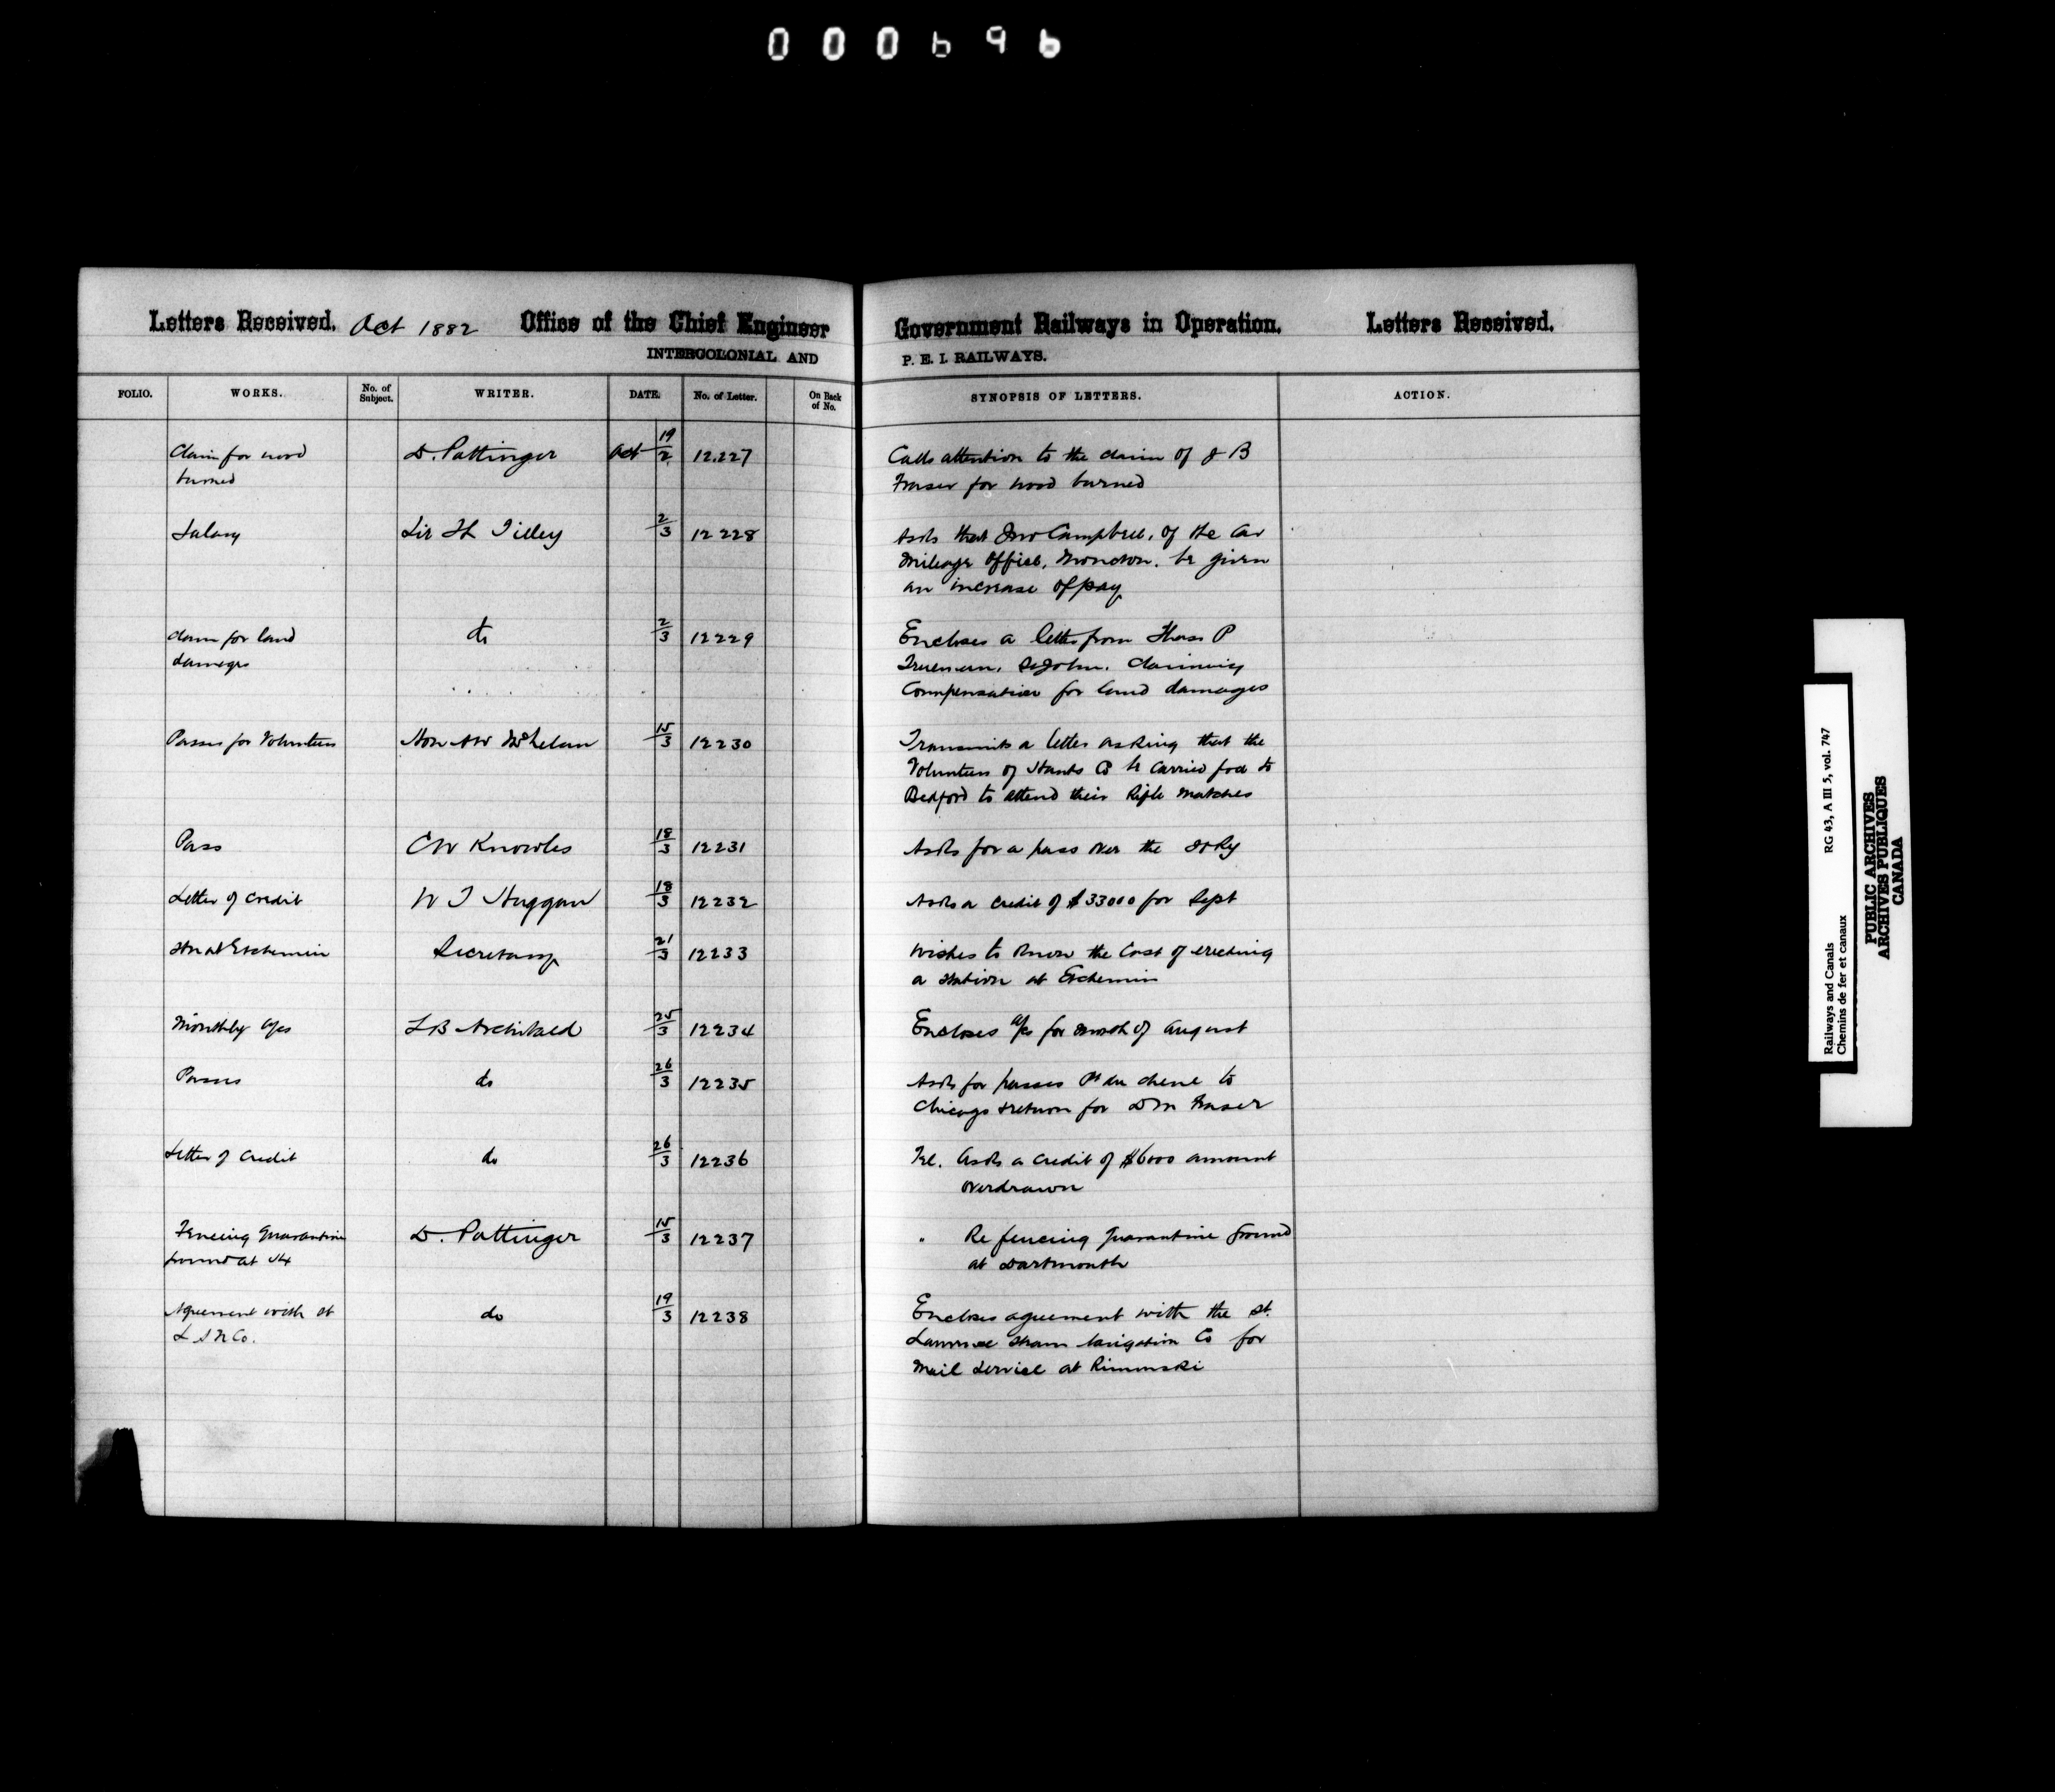 000696
Letters Received. Oct 1882 Office of the Chief Engineer Government Railways in Operation. Letters Received.
INTERCOLONIAL AND P. E. I. RAILWAYS.
FOLIO. WORKS. No. of Subject. WRITER. DATE. No. of Letter. On Back of No. SYNOPSIS OF LETTERS. ACTION.
Claim for wood D. Pottinger Oct 19/2 12.227 Calls attention to the claim of J B
burned Fraser for wood burned
Salary Sir SL Tilley 2/3 12228 Asks that Jno Campbell, of the Car
Mileage Office, Moncton, be given
an increase of pay
Claim for land do 2/3 12229 Encloses a letter from Thos P
damages Trueman, St John, claiming
Compensation for land damages
Passes for Volunteers Hon AW McLelan 15/3 12230 Transmits a letter asking that the
Volunteers of Hants Co be carried free to
Bedford to attend their Rifle Matches
Pass CW Knowles 18/3 12231 Asks for a pass over the I Ry
Letter of Credit W T Huggan 18/3 12232 Asks a credit of $33000 for Sept
Stn at Etchemin Secretary 21/3 12233 Wishes to know the Cost of erecting
a station at Etchemin
Monthly a/cs L B Archibald 25/3 12234 Encloses a/cs for month of August
Passes do 26/3 12235 Asks for passes Pt du Chene to
Chicago & return for D M Fraser
Letter of Credit do 26/3 12236 Tel. Asks a credit of $6000 amount
overdrawn
Fencing Quarantine D. Pottinger 15/3 12237 " Re fencing quarantine ground
ground at Hx at Dartmouth
Agreement with St do 19/3 12238 Encloses agreement with the St.
L S N Co. Lawrence Steam Navigation Co for
Mail Service at Rimouski
Railways and Canals RG 43, A III 5, vol. 747
Chemins de fer et canaux
PUBLIC ARCHIVES
ARCHIVES PUBLIQUES
CANADA